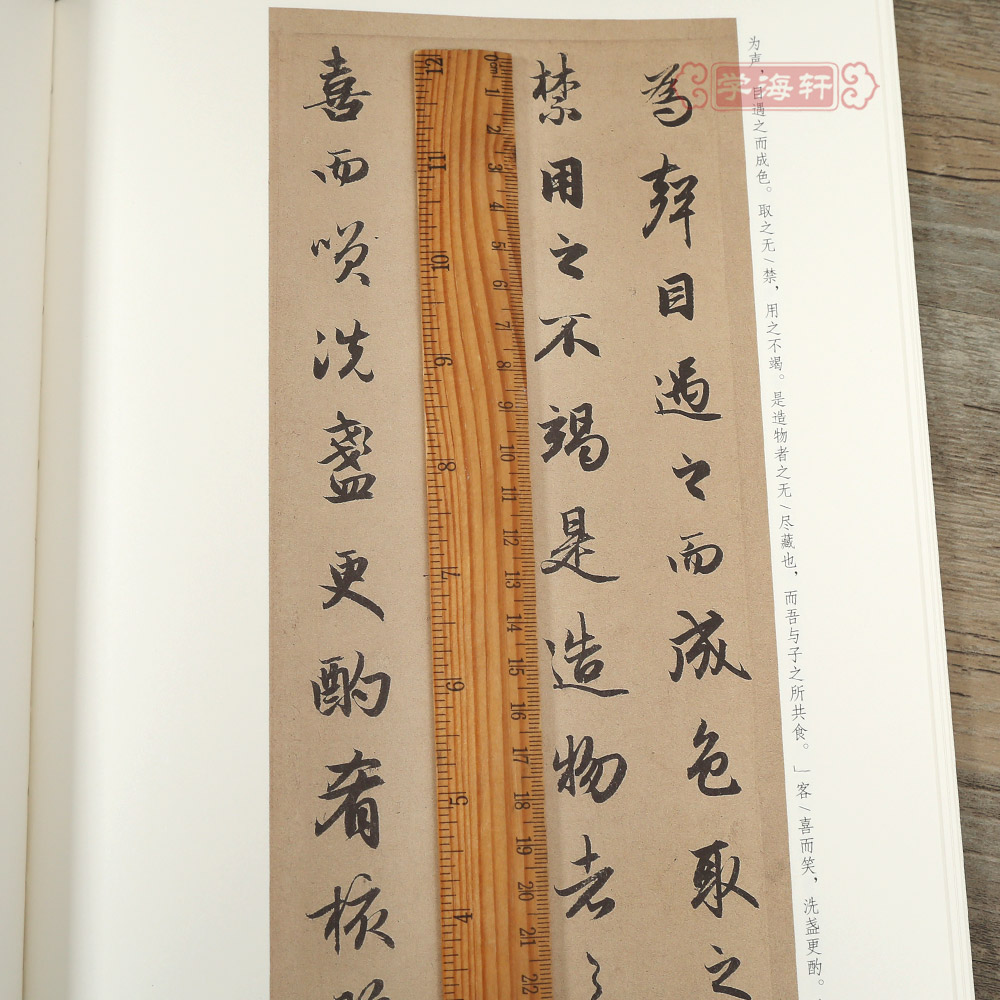 学海轩
为声，目遇之而成色。取之无\禁，用之不竭。是造物者之无\尽藏也，而吾与子之所共食。」客\喜而笑，洗盏更酌。
為聲目遇之而成色取之
禁用之不竭是造物者之
喜而咲洗盞更酌肴核
0cm 1 2 3 4 5 6 7 8 9 10 11 12 13 14 15 16 17 18 19 20 21 22
12 11 10 9 8 7 6 5 4